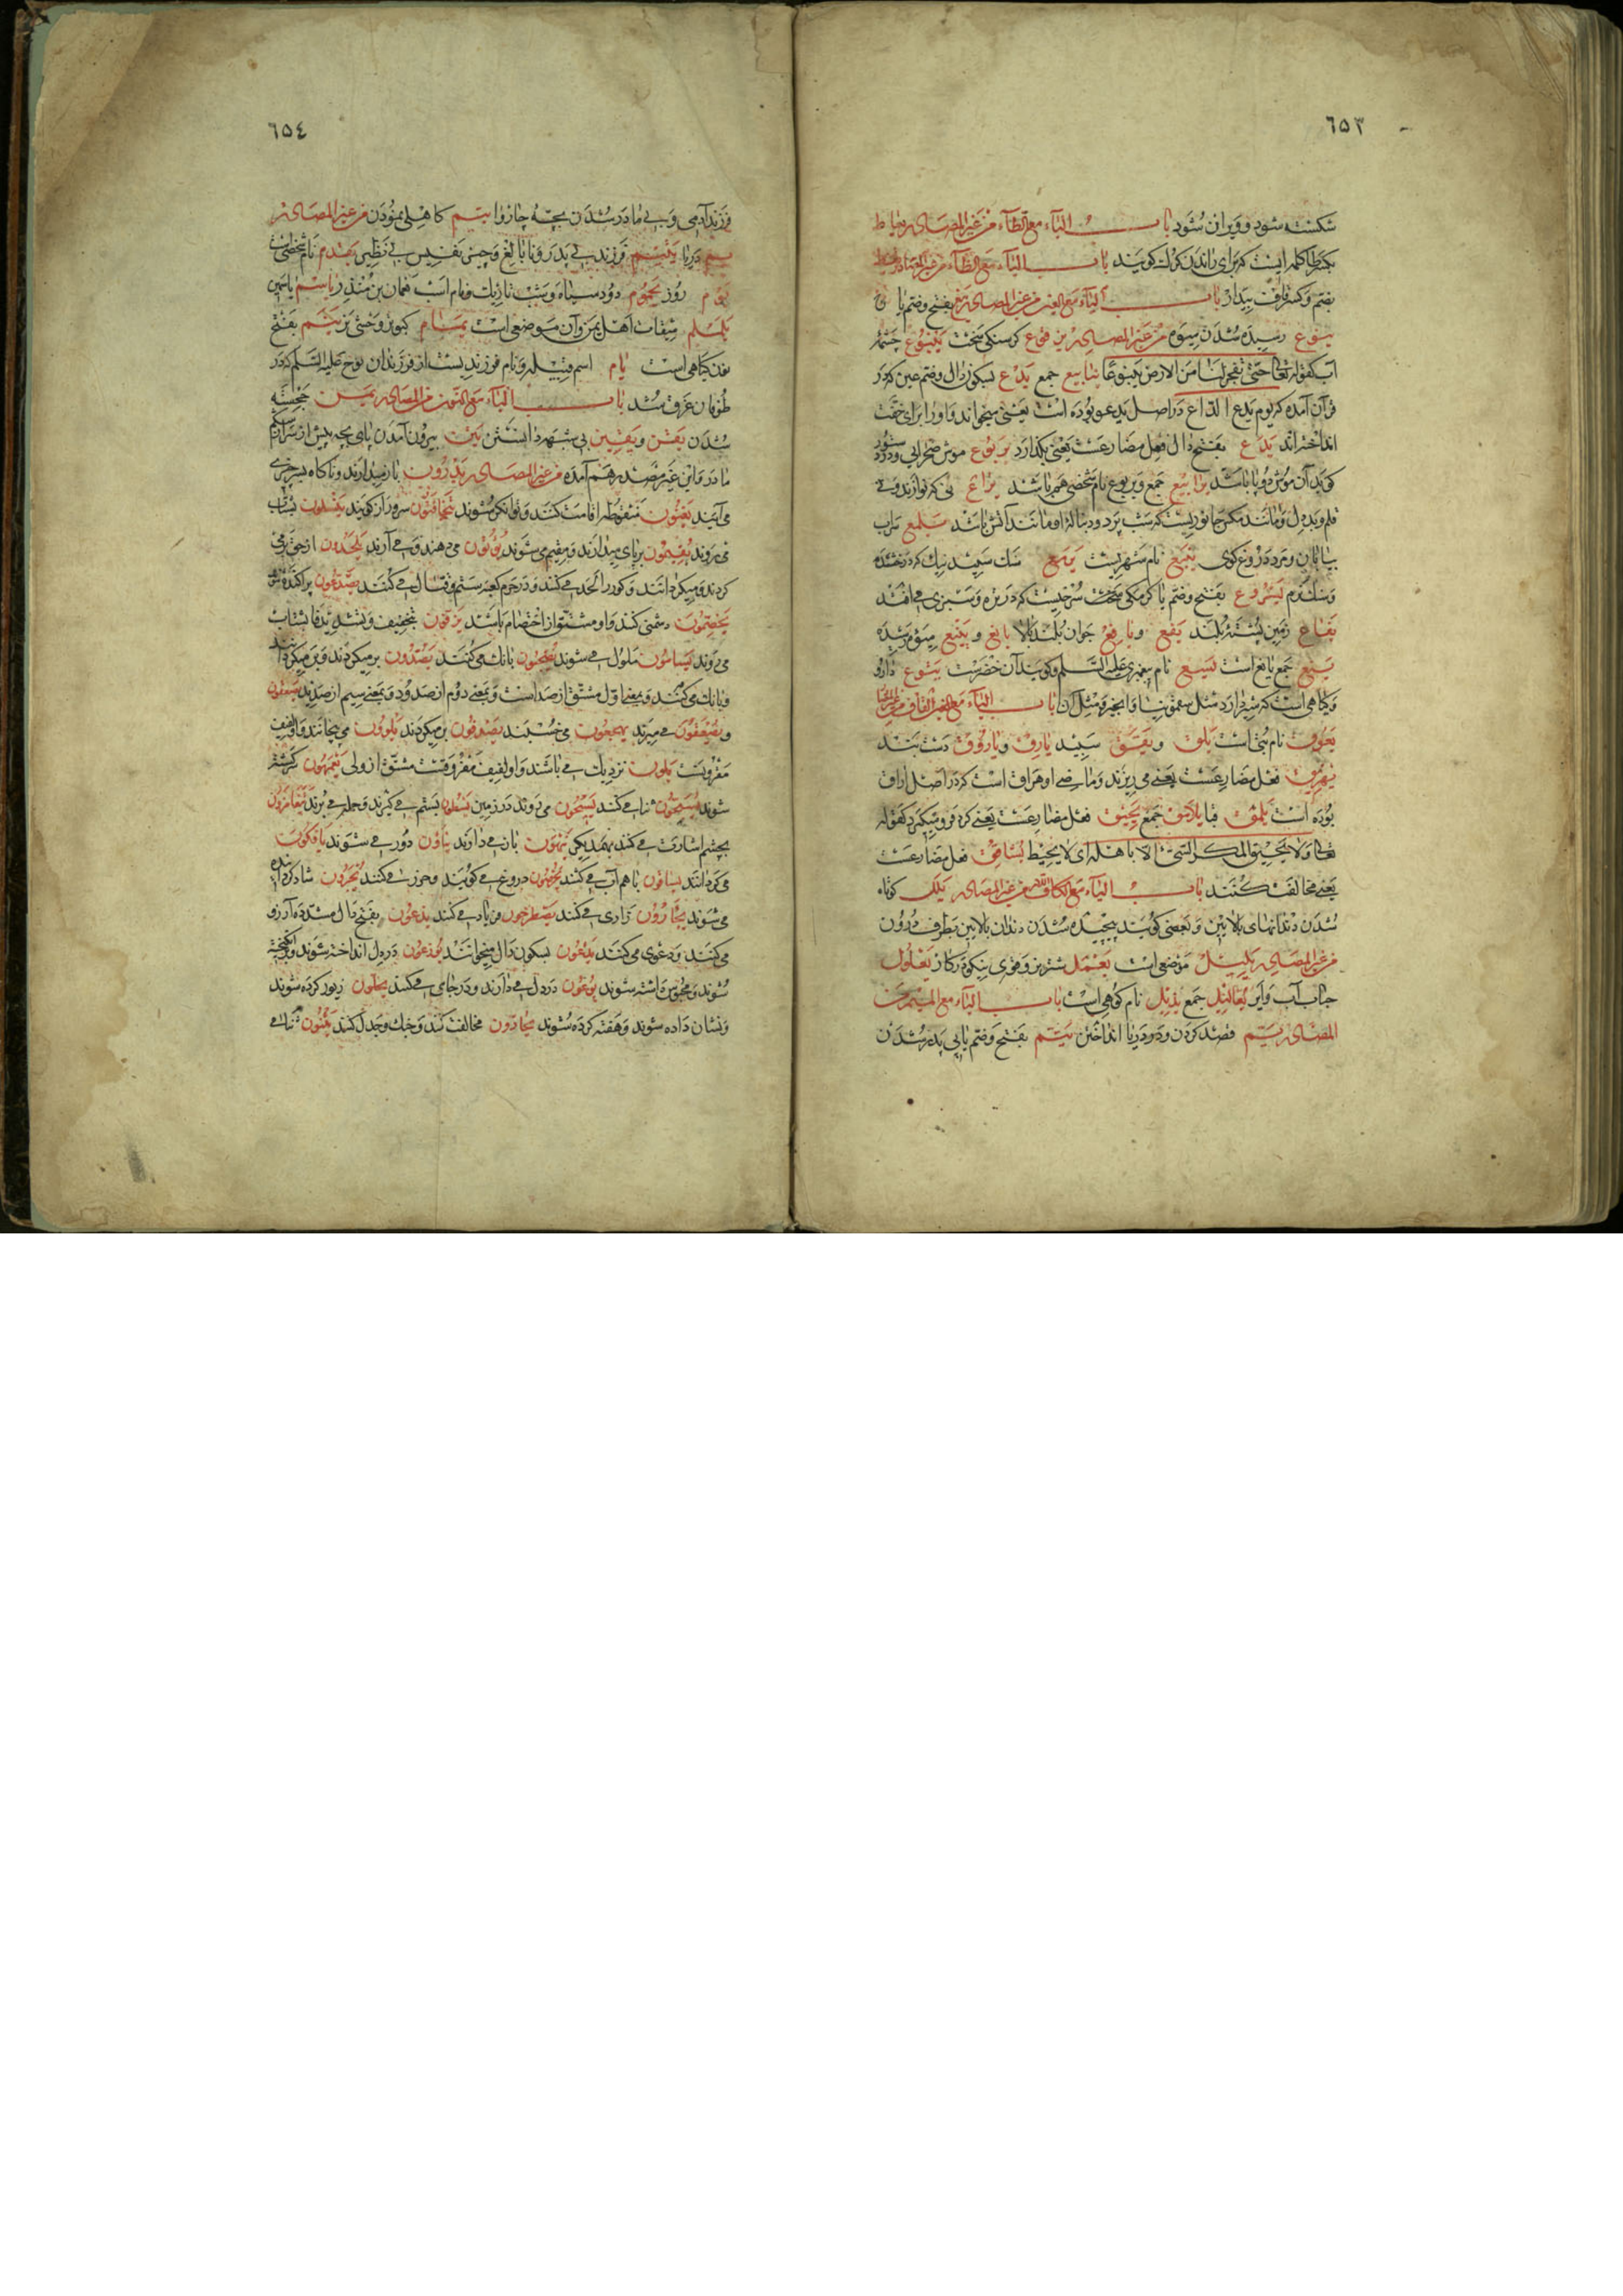 ٦٥٣
شکسته شود و ویران شود باب الیاء مع الطاء من غیر المصادر یعاط
کلمه ایست که برای راندن کرک کویند باب الیاء مع الظاء من غیر المصادر یقظ
بضم و کسر قاف بیدار باب الیاء مع العین من غیر المصادر ینع بفتح و ضم یا
ینوع رسیده شدن میوه من غیر المصادر کرسنکی سخت ینبوع چشمه
آب کقوله تعالی حتی تفجر لنا من الارض ینبوعا ینابیع جمع یدع بسکون دال و ضم عین که در
قرآن آمده که یوم یدع الداع در اصل یدعو بوده است یعنی میخواند و او را برای خفت
انداخته اند یدع بفتح دال فعل مضارعست یعنی بکذارد یربوع موش صحرایی و درود
کوید آن موش دو پا باشد یرابیع جمع و یربوع نام شخصی هم باشد یراع نی که نوازند و نی
قلم و بددل و مانند مکس جانوریست که شب پرد و دنباله او مانند آتش باشد یلمع سراب
بیابان و مرد دروغ کوی ینبع نام شهریست یرمع سنک سپید نیک که درخشد
و سنک نرم یسروع بفتح و ضم یا کرمکی سخت سرخیست که در تره و سبزی می افتد
یفاع زمین پشته بلند یفع و یافع جوان بلند بالا یانع و ینیع میوه رسیده
ینع جمع یانع است یسع نام پیغمبری علیه السلام و کویند آن خضرست یتوع دارو
و کیاهی است که شیر دارد مثل سقمونیا و انجیر و مثل آن باب الیاء مع القاف من غیر المصادر
یعوق نام بتی است یلق و یقق سپید یارق و یاروق دست بند
یهریق فعل مضارعست یعنی می ریزند و ماضی او هراق است که در اصل اراق
بوده است یلمق قبا یلامق جمع یحیق فعل مضارعست یعنی کرد فرو میکیرد کقوله
تعالی ولا یحیق المکر السیئ الا باهله ای لا یحیط یشاقق فعل مضارعست
یعنی مخالفت کنند باب الیاء مع الکاف واللام من غیر المصادر یلل کوتاه
شدن دندانهای بالایین و بعضی کویند پیچیده شدن دندان بالایین بطرف درون
من غیر المصادر یلیل موضعی است یعمل شتر نر و قوی نیکو در کار یعلول
حباب آب و ابر یعالیل جمع یذبل نام کوهی است باب الیاء مع المیم من
المصادر یمم قصد کردن و در دریا انداختن یتم بفتح و ضم یا بی پدر شدن
٦٥٤
فرزند آدمی و بی مادر شدن بچه چاروا یتم کاهلی نمودن من غیر المصادر
یم دریا یتیم فرزند بی پدر و نابالغ و چیز نفیس بی نظیر یقدم نام شخصی است
یوم روز یحموم دود سیاه و شب تاریک و نام اسب نعمان بن منذر یاسم یاسمین
یلملم میقات اهل یمن و آن موضعی است یمام کبوتر وحشی نر ینم بفتح
نون کیاهی است یام اسم قبیله و نام فرزندیست از فرزندان نوح علیه السلام که در
طوفان غرق شد باب الیاء مع النون من المصادر یمن خجسته
شدن یقن و یقین بی شبهه دانستن یتن بیرون آمدن پای بچه پیش از سر از شکم
مادر و این غیر مصدر هم آمده من غیر المصادر
می آیند یغنون اقامت کنند و توانکر شوند یتخافتون سر و راز کویند ینسلون بشتاب
می روند یقیمون برپای میدارند و مقیم می شوند یؤتون می دهند و می آرند یلحدون از حق برمی
کردند و میکردانند و کور را لحد می کنند و در حرم کعبه ستم و قتال می کنند یصدعون پراکنده شوند
یختصمون دشمنی کنند و او مشتق از اختصام باشد یزفون بتخفیف و بتشدید فا بشتاب
می روند یسأمون ملول می شوند یضجون بانک می کنند یصدون برمیکردند و برمیکردانند
و بانک می کنند و بمعنی اول مشتق از صد است و بمعنی دوم از صدود و بمعنی سیم از صدید یصعقون
می میرند یهجعون می خسپند یصدفون برمیکردند یلوون می پیچانند و او لفیف
مقرونست یلون نزدیک می باشند و او لفیف مفروقست مشتق از ولی یعمهون سرکشته
شوند یسبحون ثنا می کنند یسیحون می روند در زمین یسطون بستم می کیرند و حمله می برند یتغامزون
بچشم اشارت می کنند بهمدیکر ینهون باز می دارند ینأون دور می شوند یؤفکون
می کردانند با هم آب می کنند یخرصون دروغ می کویند و حرز می کنند یحبرون شاد کردانیده
می شوند یجأرون زاری می کنند یصطرخون فریاد می کنند یدعون بفتح دال مشدده آرزو
می کنند و دعوی می کنند یدعون بسکون دال میخوانند یوزعون در دل انداخته شوند و برانکیخته
شوند و محبوس داشته شوند یوعون در دل می دارند و در جای می کنند یحلون زیور کرده شوند
و نشان داده شوند و هفته کرده شوند یحادون مخالفت کنند و جنک و جدل کنند یثنون ثنا می